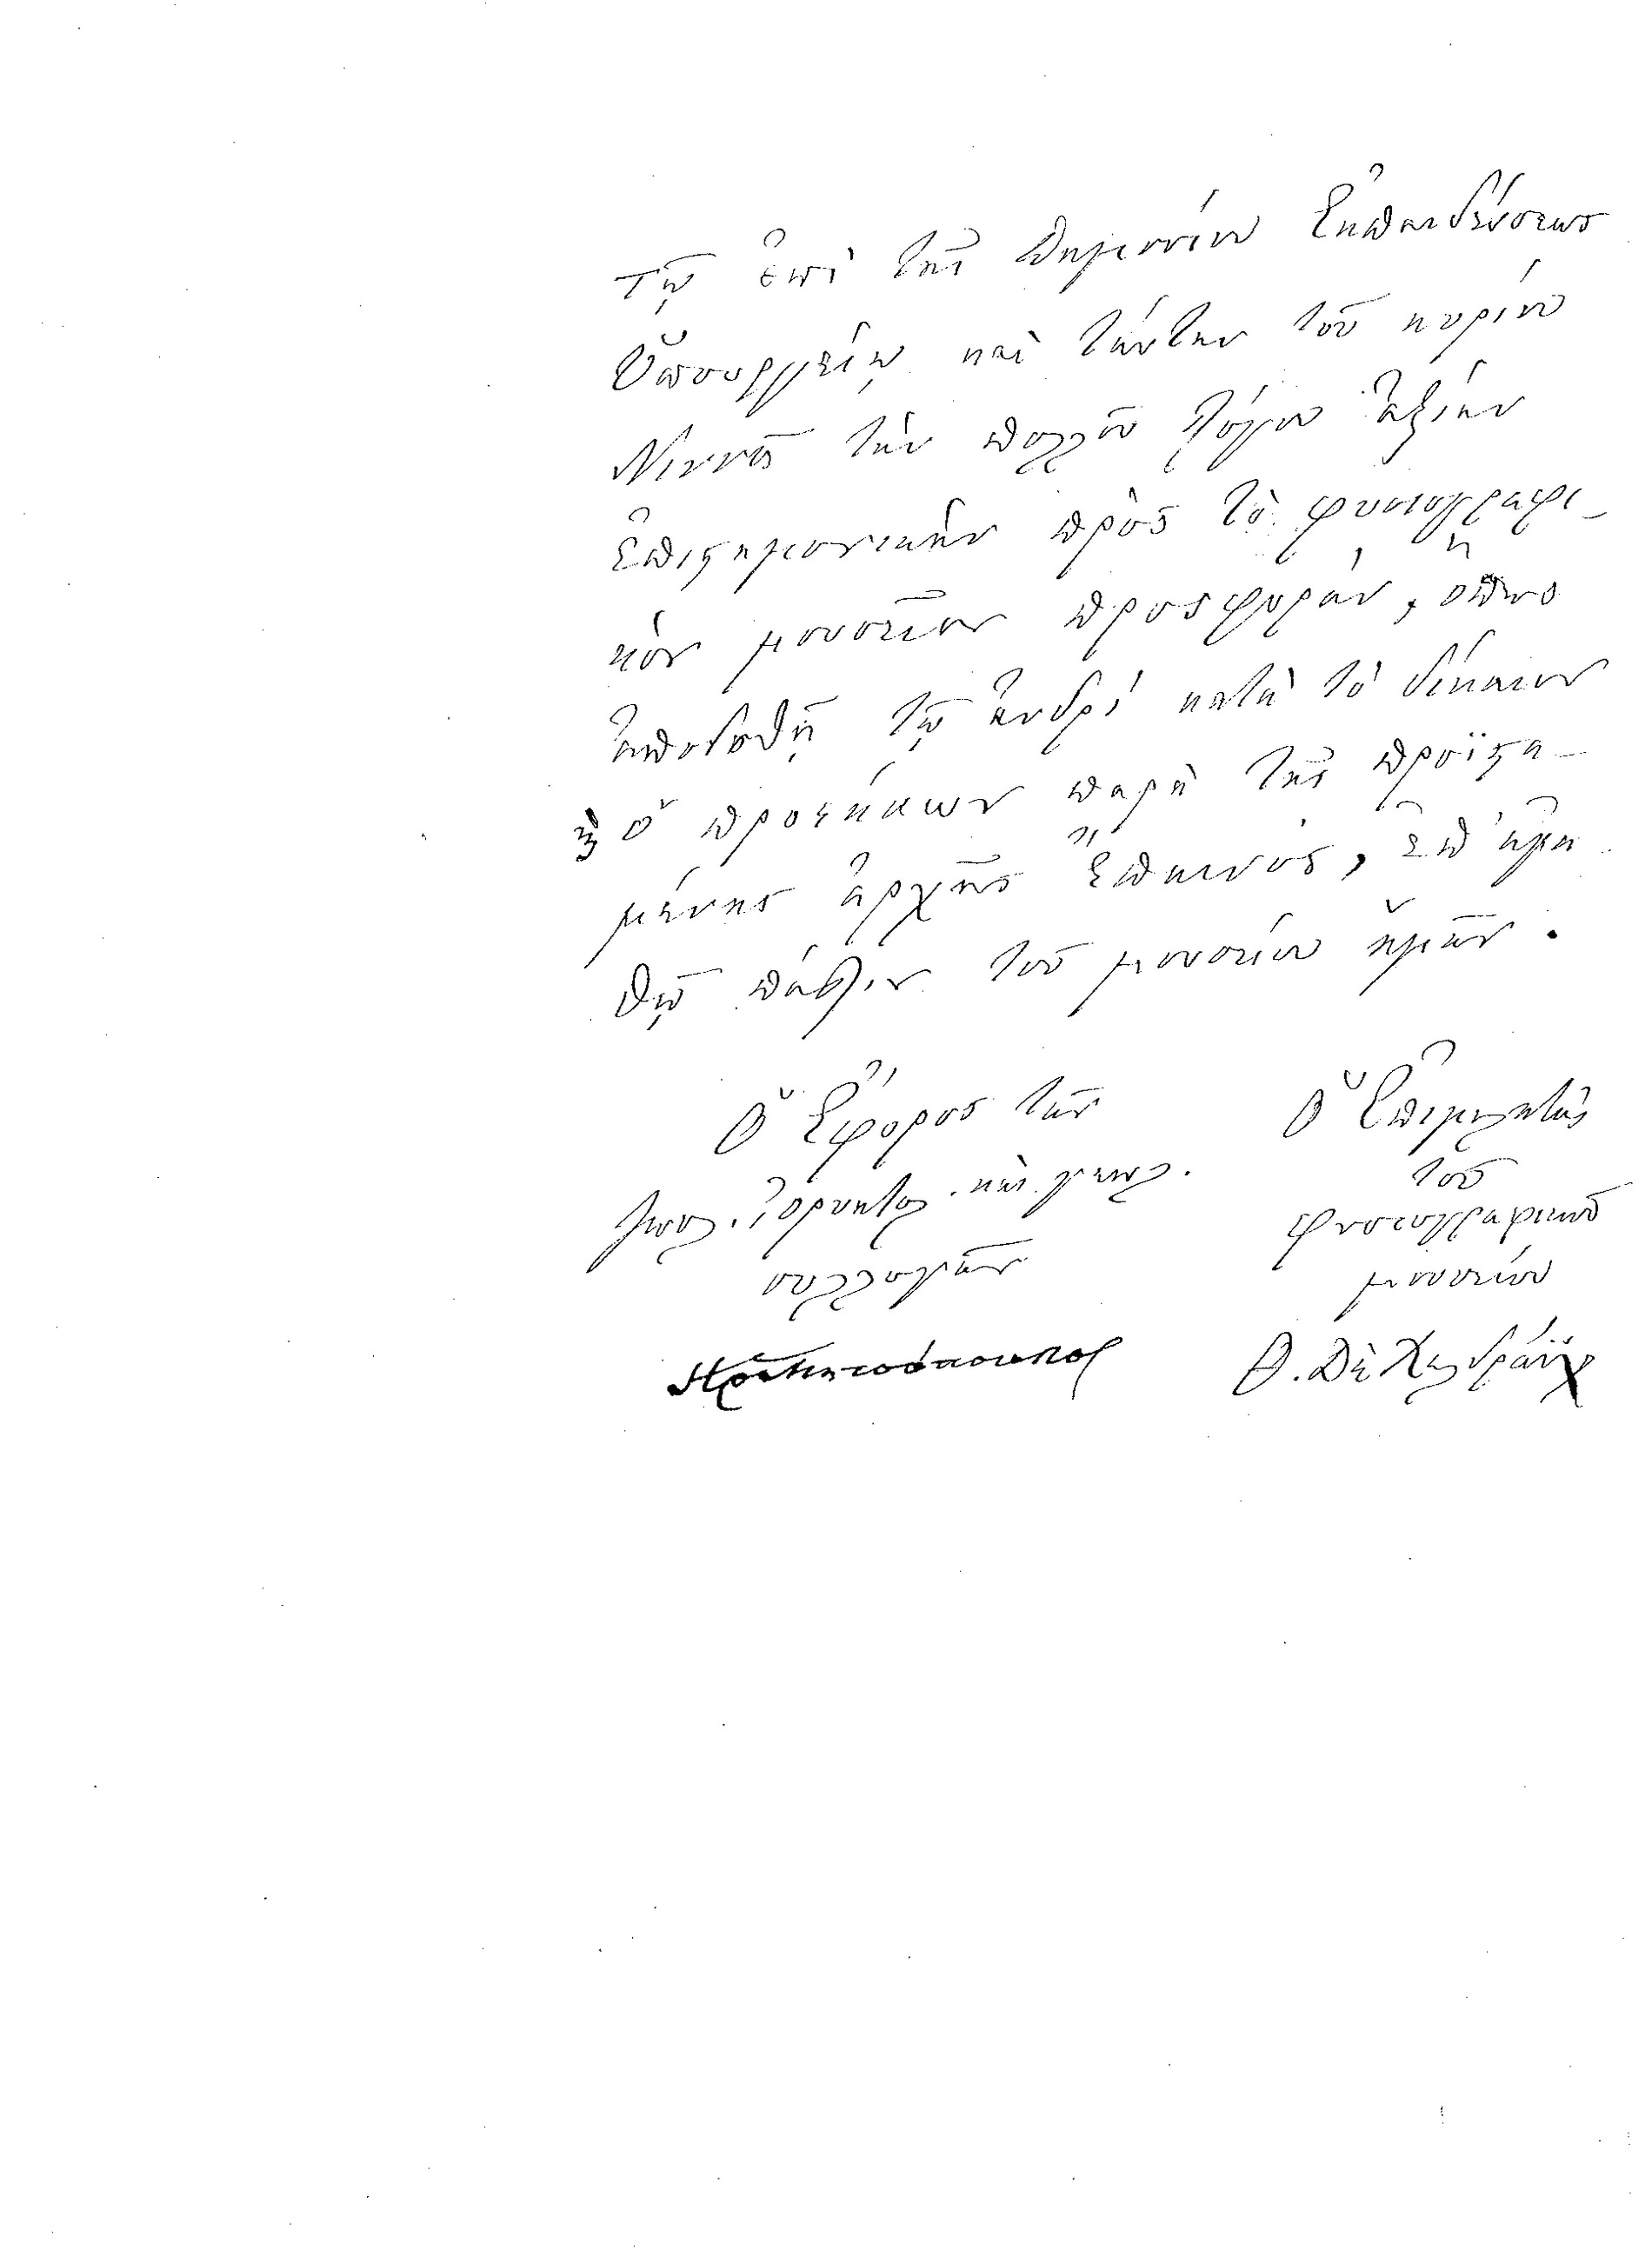 τῷ ἐπὶ τῆς Δημοσίου Ἐκπαιδεύσεως
Ὑπουργείῳ καὶ ταύτην τοῦ κυρίου
τὴν πολλοῦ λόγου ἀξίαν
ἐπιστημονικὴν πρὸς τὸ φυσιογραφι-
κὸν μουσεῖον προσφοράν, ὅπως
ἀποδοθῇ τῷ ἀνδρὶ κατὰ τὸ δίκαιον
ὁ προσήκων παρὰ τῆς προϊστα-
μένης ἀρχῆς ἔπαινος, ἐπ' ἀγα-
θῷ πάλιν τοῦ μουσείου ἡμῶν.
Ὁ Ἔφορος τῶν
ζωολ. ὀρυκτολ. καὶ γεωλ.
συλλογῶν
Ὁ Ἐπιμελητὴς
τοῦ
φυσιογραφικοῦ
μουσείου
Θ. Δὲ Χελδράϊχ